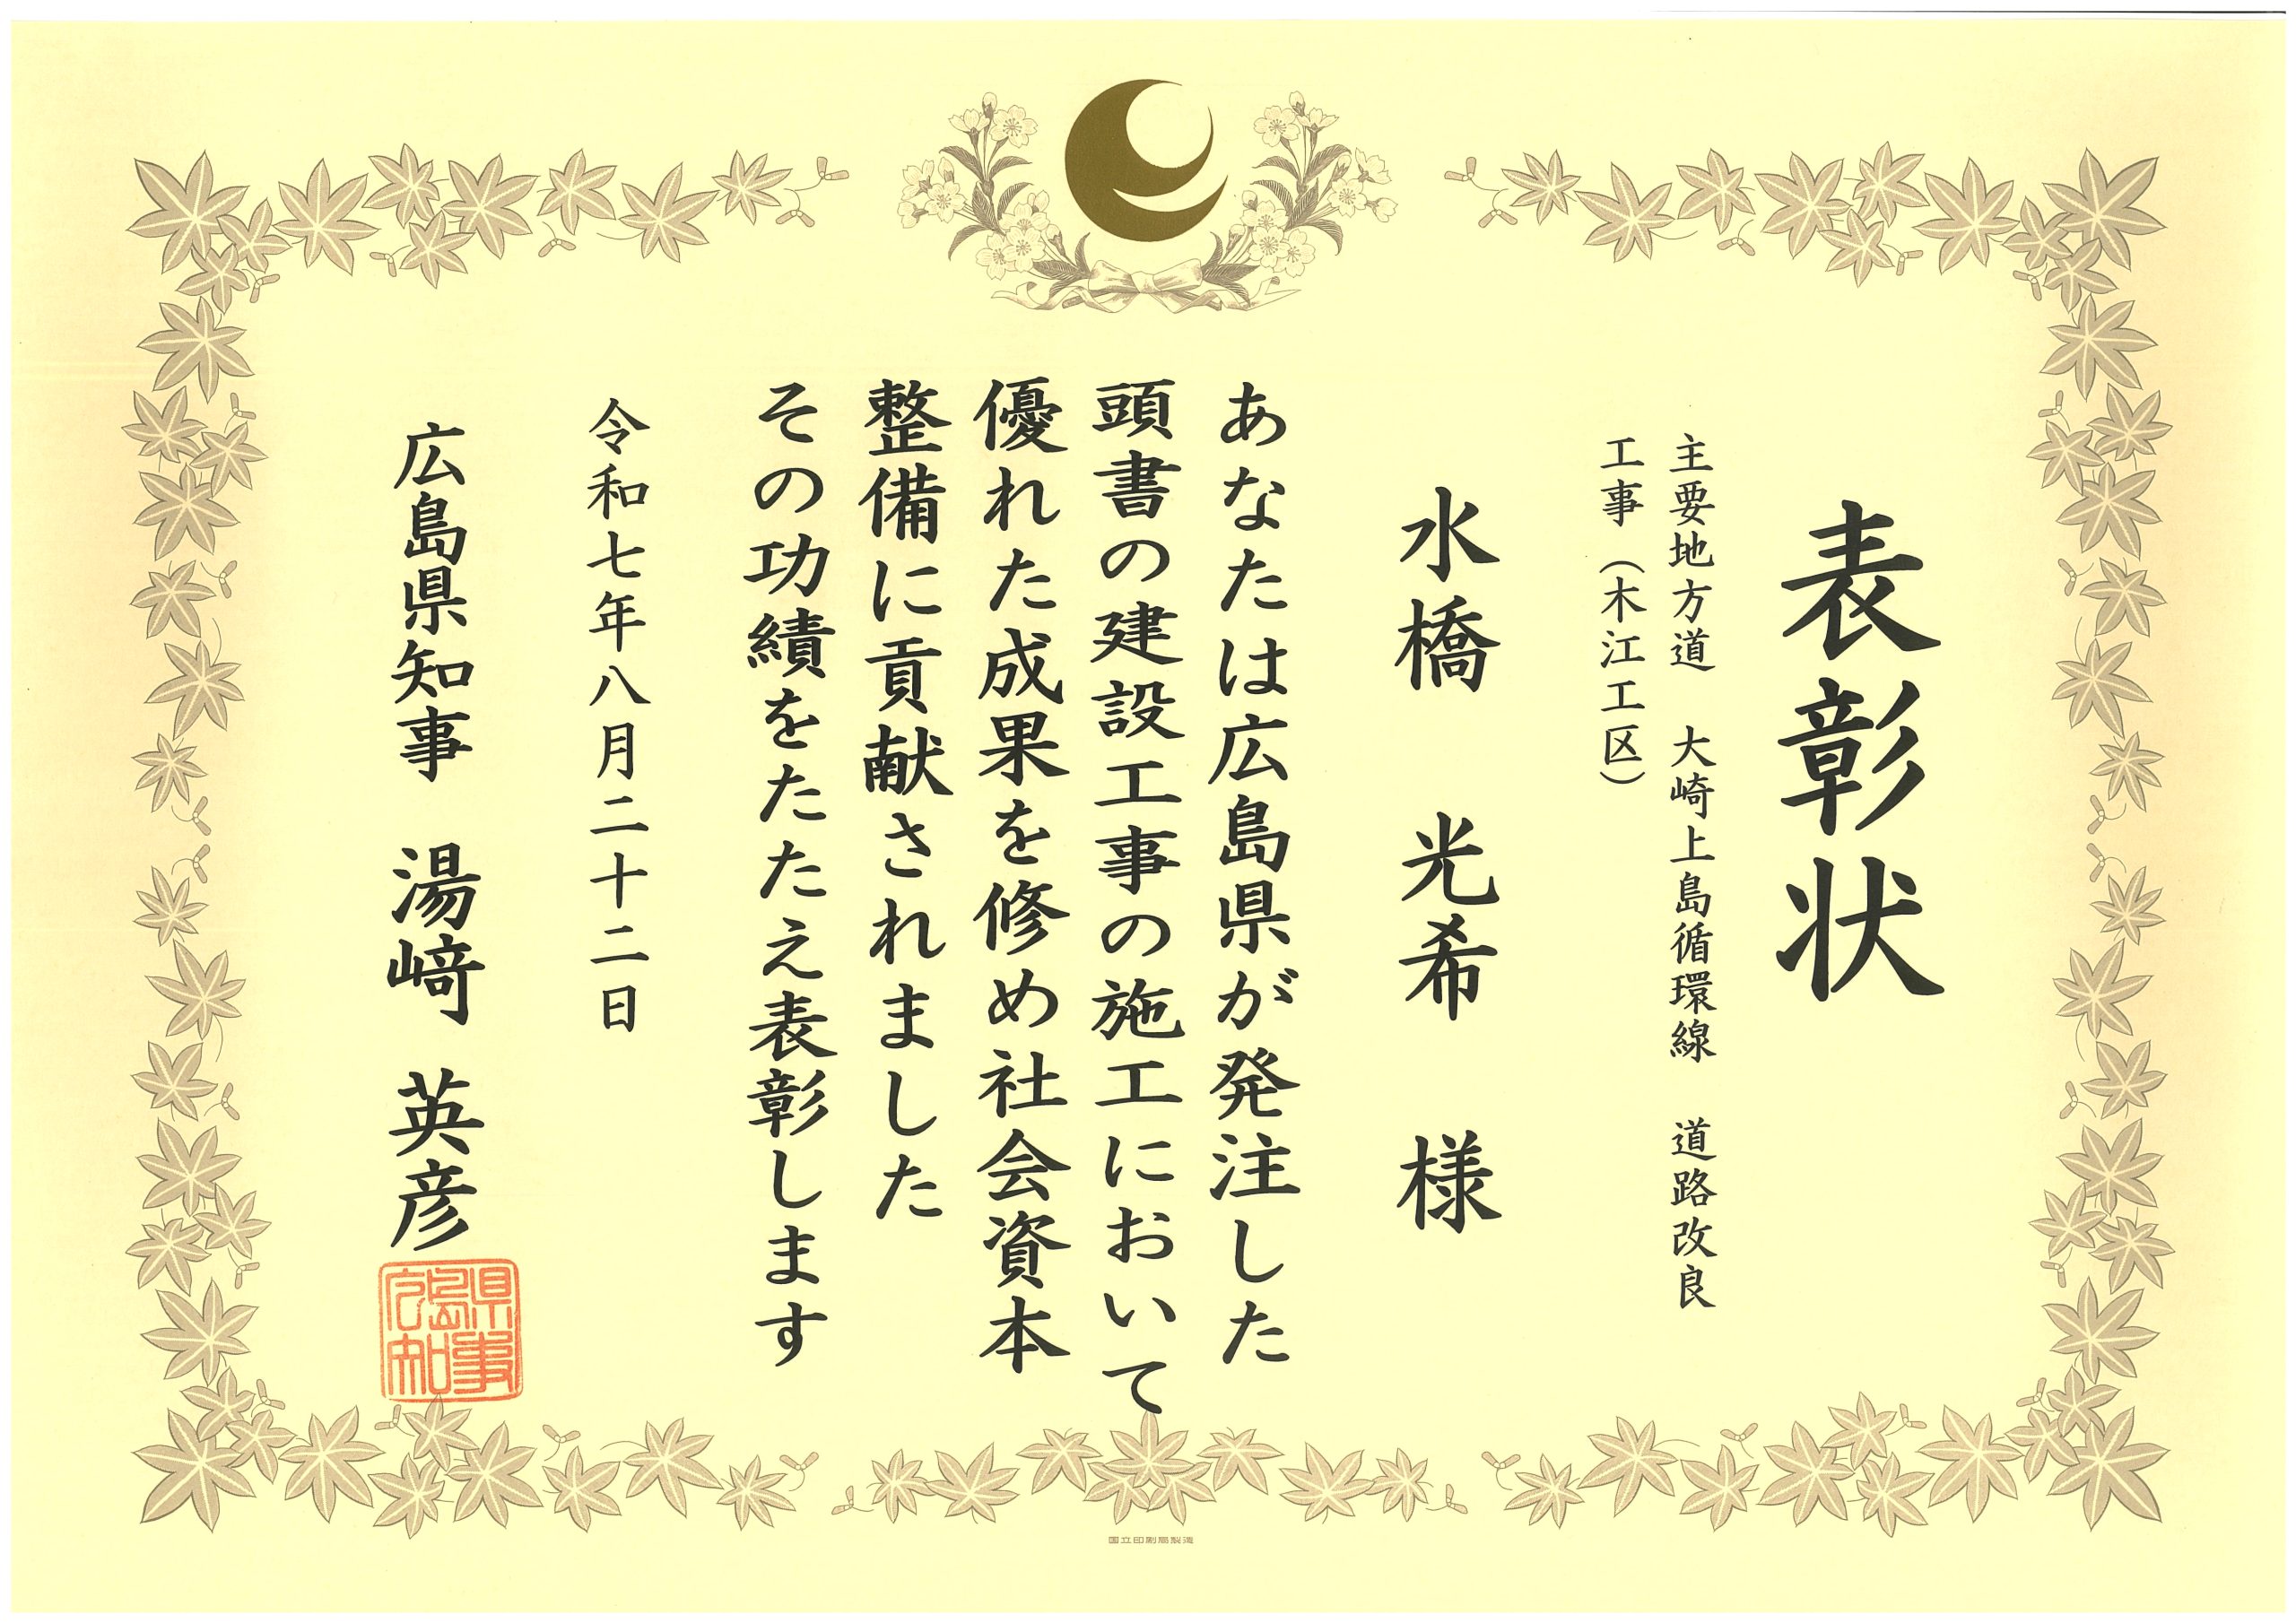 表彰状
主要地方道　大崎上島循環線　道路改良
工事（木江工区）
水橋　光希　様
あなたは広島県が発注した
頭書の建設工事の施工において
優れた成果を修め社会資本
整備に貢献されました
その功績をたたえ表彰します
令和七年八月二十二日
広島県知事　湯﨑　英彦
広島県知事
国立印刷局製造